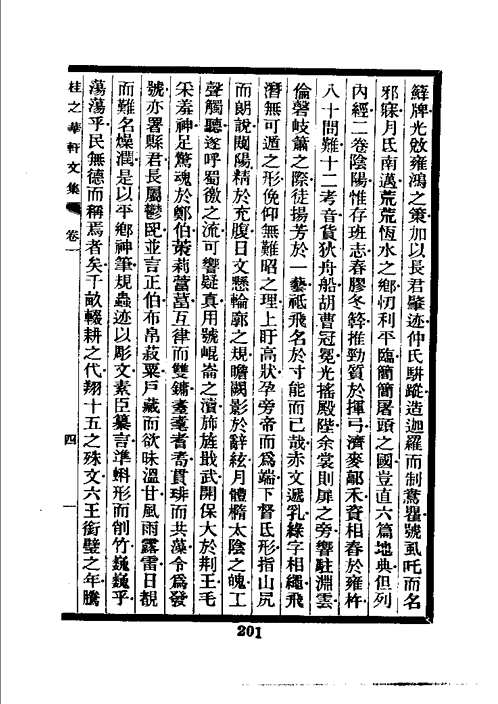 牌光敚雍鴻之策加以長君肇迹仲氏駢蹤造迦羅而制鴦瞿號虱吒而名
邪寐月氏南邁荒荒恆水之鄉忉利平臨簡簡屠頭之國豈直六篇地典但列
內經二卷陰陽惟存班志春膠冬簳推勁質於揮弓濟麥鄗禾資相舂於雍杵
八十問難十二考音貨狄舟船胡曹冠冕光搖殿陛余裳則扉之旁響駐淵雲
倫磬岐簫之際徒揚芳於一藝祗飛名於寸能而已哉赤文遞乳綠字相繩飛
潛無可遁之形俛仰無難昭之理上盱高狀孕旁帝而爲端下督氐形指山尻
而朗說闓陽精於充腹日文懸輪郭之規瞻闕影於辭絃月體橢太陰之魄工
聲觸聽遂呼蜀徼之流可響疑真用號崐崙之瀆斾旌戢武開保大於荆王毛
采羞神足驚魂於鄭伯莉葍互律而雙耋耄耆耇貫琲而共藻令爲發
號亦署縣君長屬鬱並言正伯布帛菽粟戶藏而欲昧溫甘風雨露雷日覩
而難名燥潤是以平鄉神筆規蟲迹以彫文素臣纂言準蝌形而削竹巍巍乎
蕩蕩乎民無德而稱焉者矣千畝輟耕之代翔十五之殊文六王銜璧之年騰
桂之華軒文集 卷一 四
201